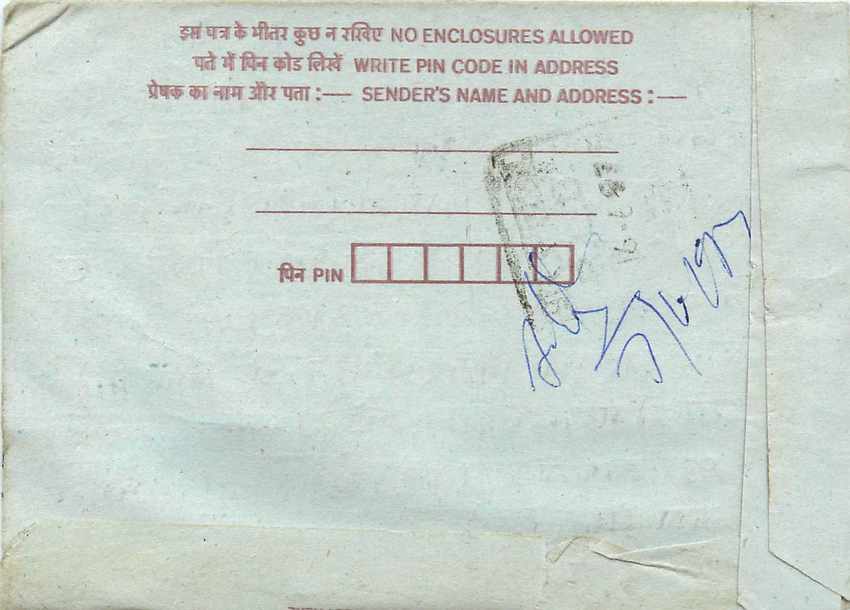 इस पत्र के भीतर कुछ न रखिए NO ENCLOSURES ALLOWED
पते में पिन कोड लिखें WRITE PIN CODE IN ADDRESS
प्रेषक का नाम और पता :— SENDER'S NAME AND ADDRESS :—
पिन PIN